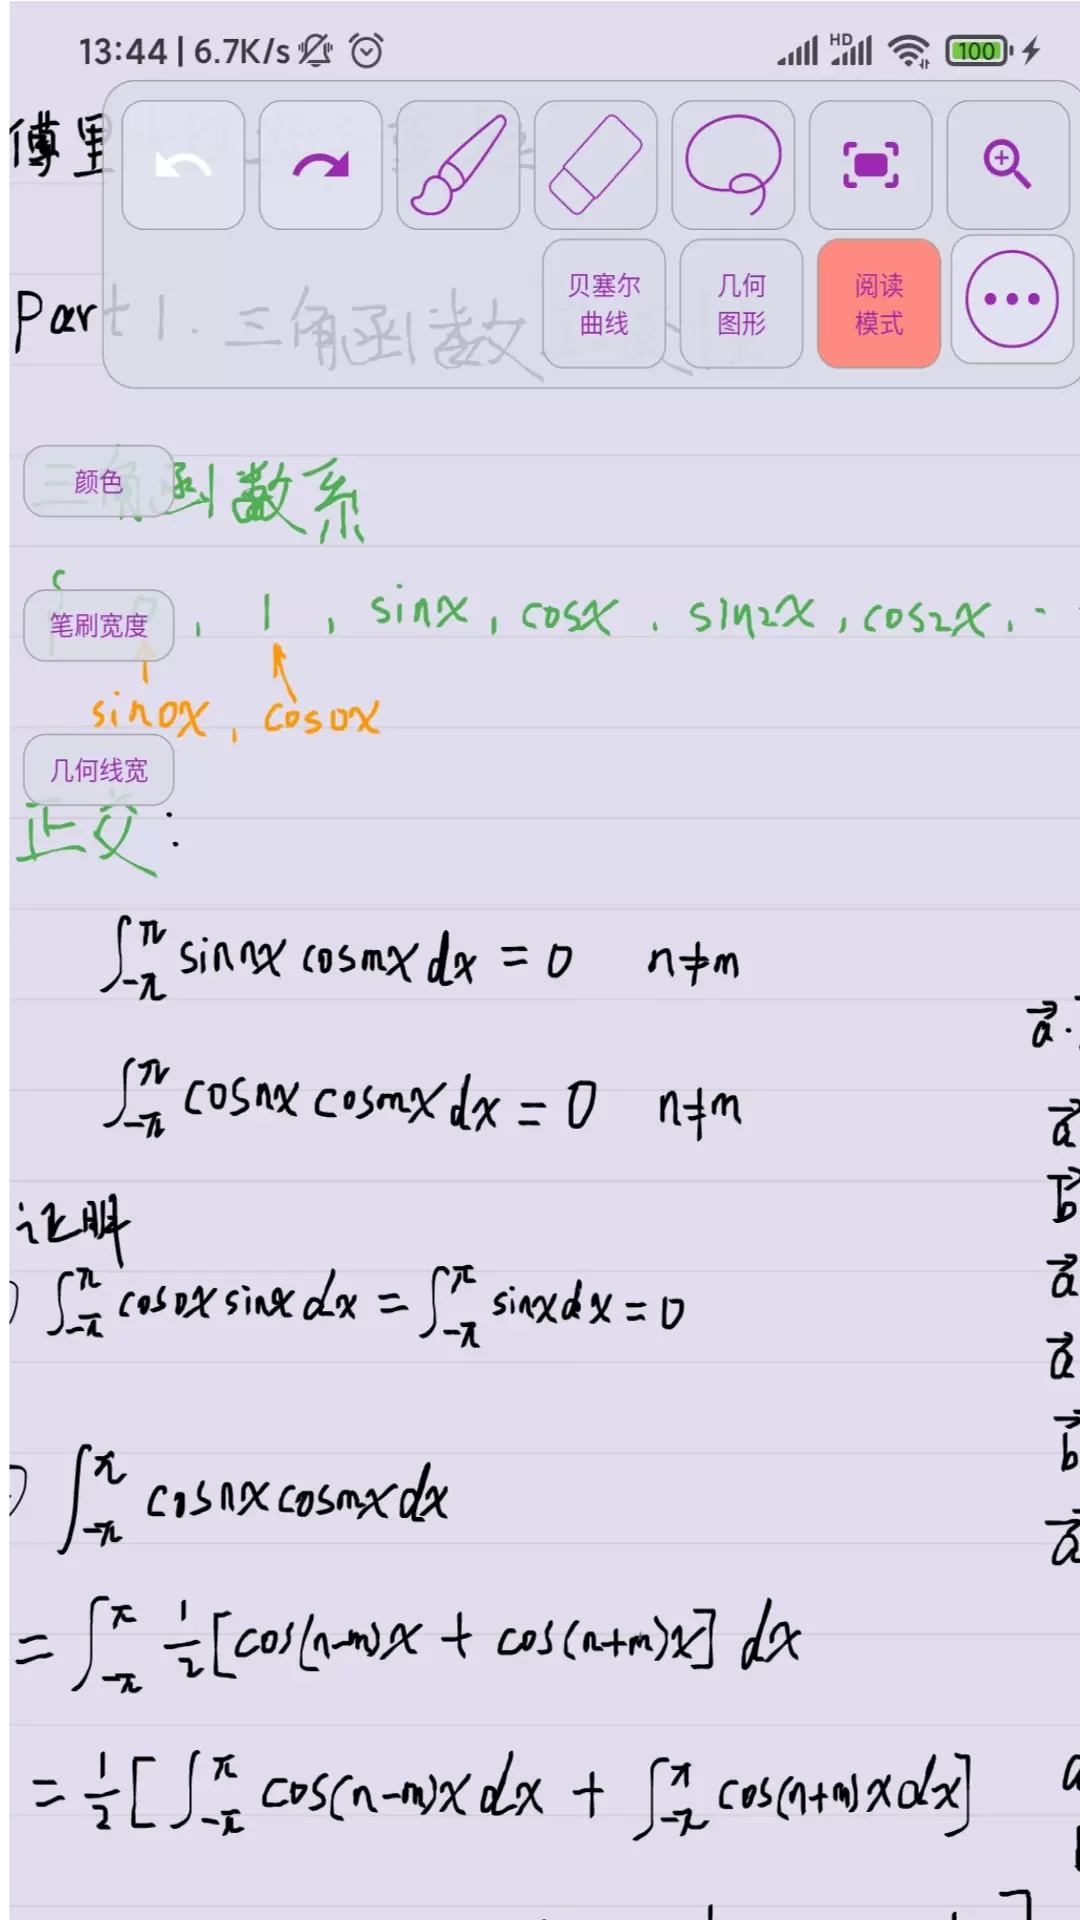 13:44 | 6.7K/s HD 100
傅里
贝塞尔 几何 阅读
曲线 图形 模式
Part 1. 三角函数
颜色
三角函数系
笔刷宽度
{ 0, 1, sinx, cosx, sin2x, cos2x, ..
sin0x, cos0x
几何线宽
正交:
∫_{-π}^{π} sin nx cos mx dx = 0 n≠m
a⃗ ·
∫_{-π}^{π} cos nx cos mx dx = 0 n≠m
a⃗
b⃗
证明
a⃗
) ∫_{-π}^{π} cos0x sinx dx = ∫_{-π}^{π} sinx dx = 0
a⃗
b⃗
) ∫_{-π}^{π} cos nx cos mx dx
a⃗
= ∫_{-π}^{π} 1/2 [cos(n-m)x + cos(n+m)x] dx
= 1/2 [∫_{-π}^{π} cos(n-m)x dx + ∫_{-π}^{π} cos(n+m)x dx]